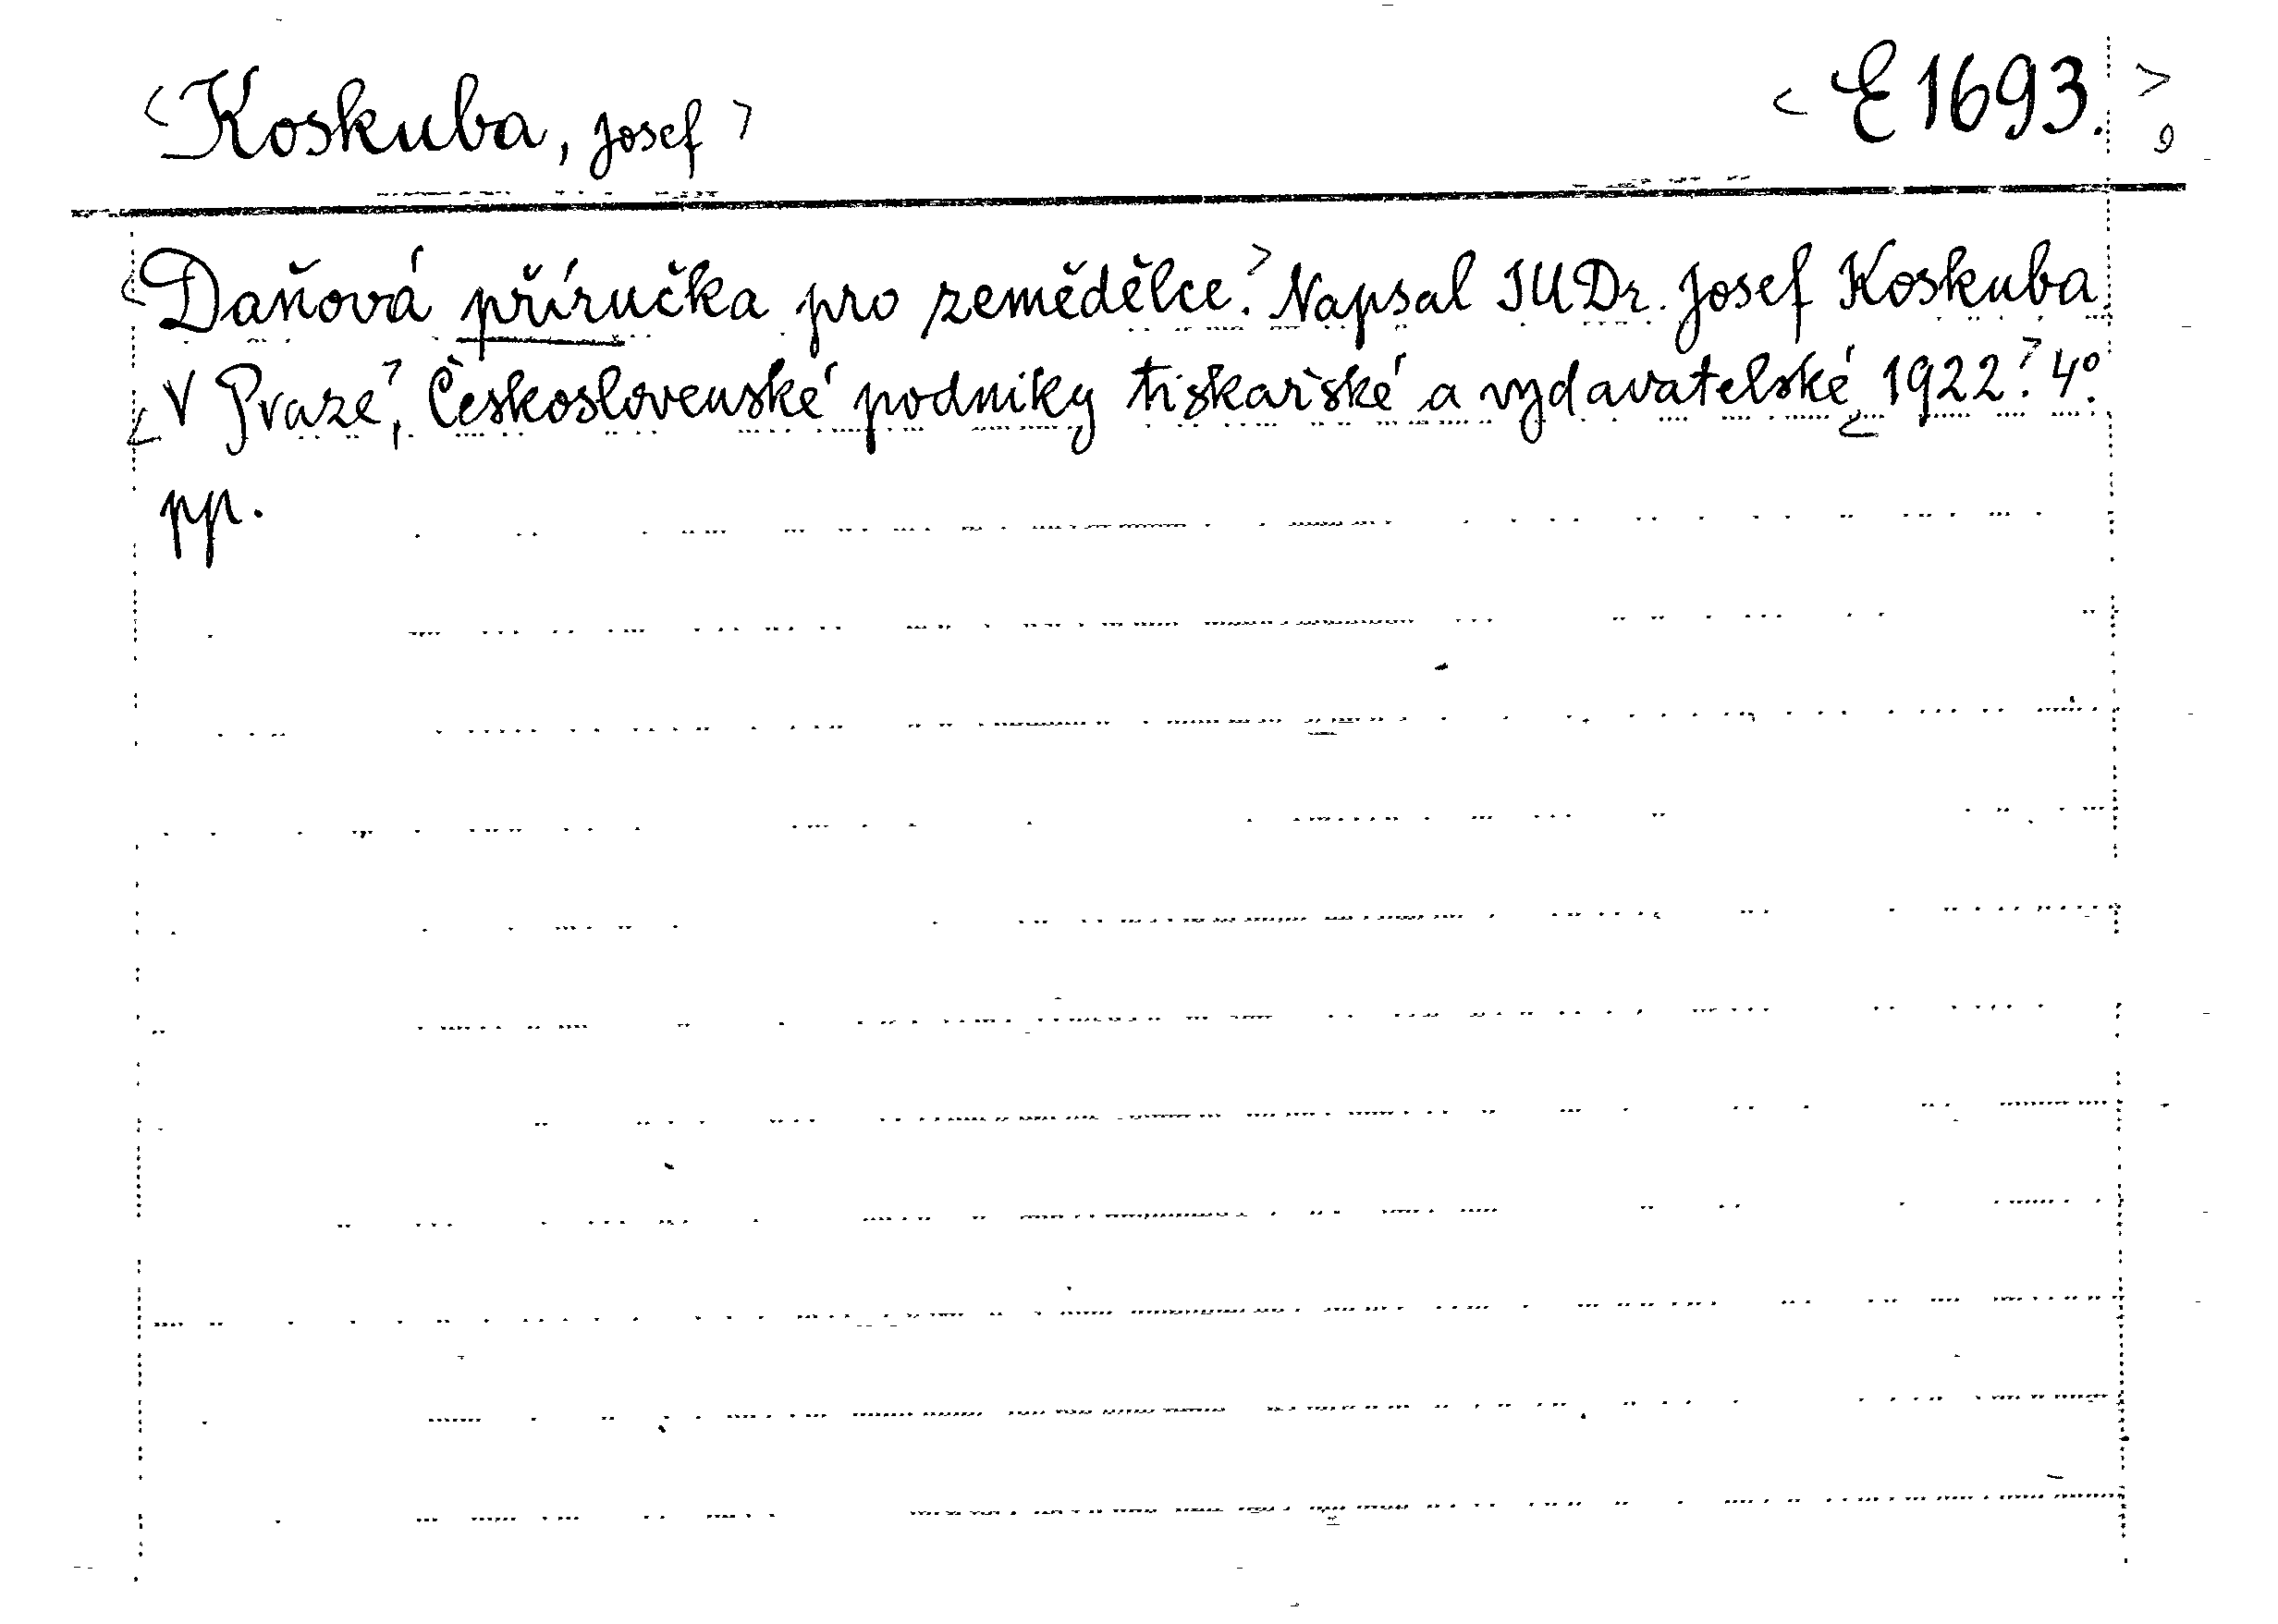 <Koskuba, Josef> <E 1693.>
<Daňová příručka pro zemědělce.> Napsal JUDr. Josef Koskuba.
<V Praze>, Československé podniky tiskařské a vydavatelské, <1922>. 4°.
pp.